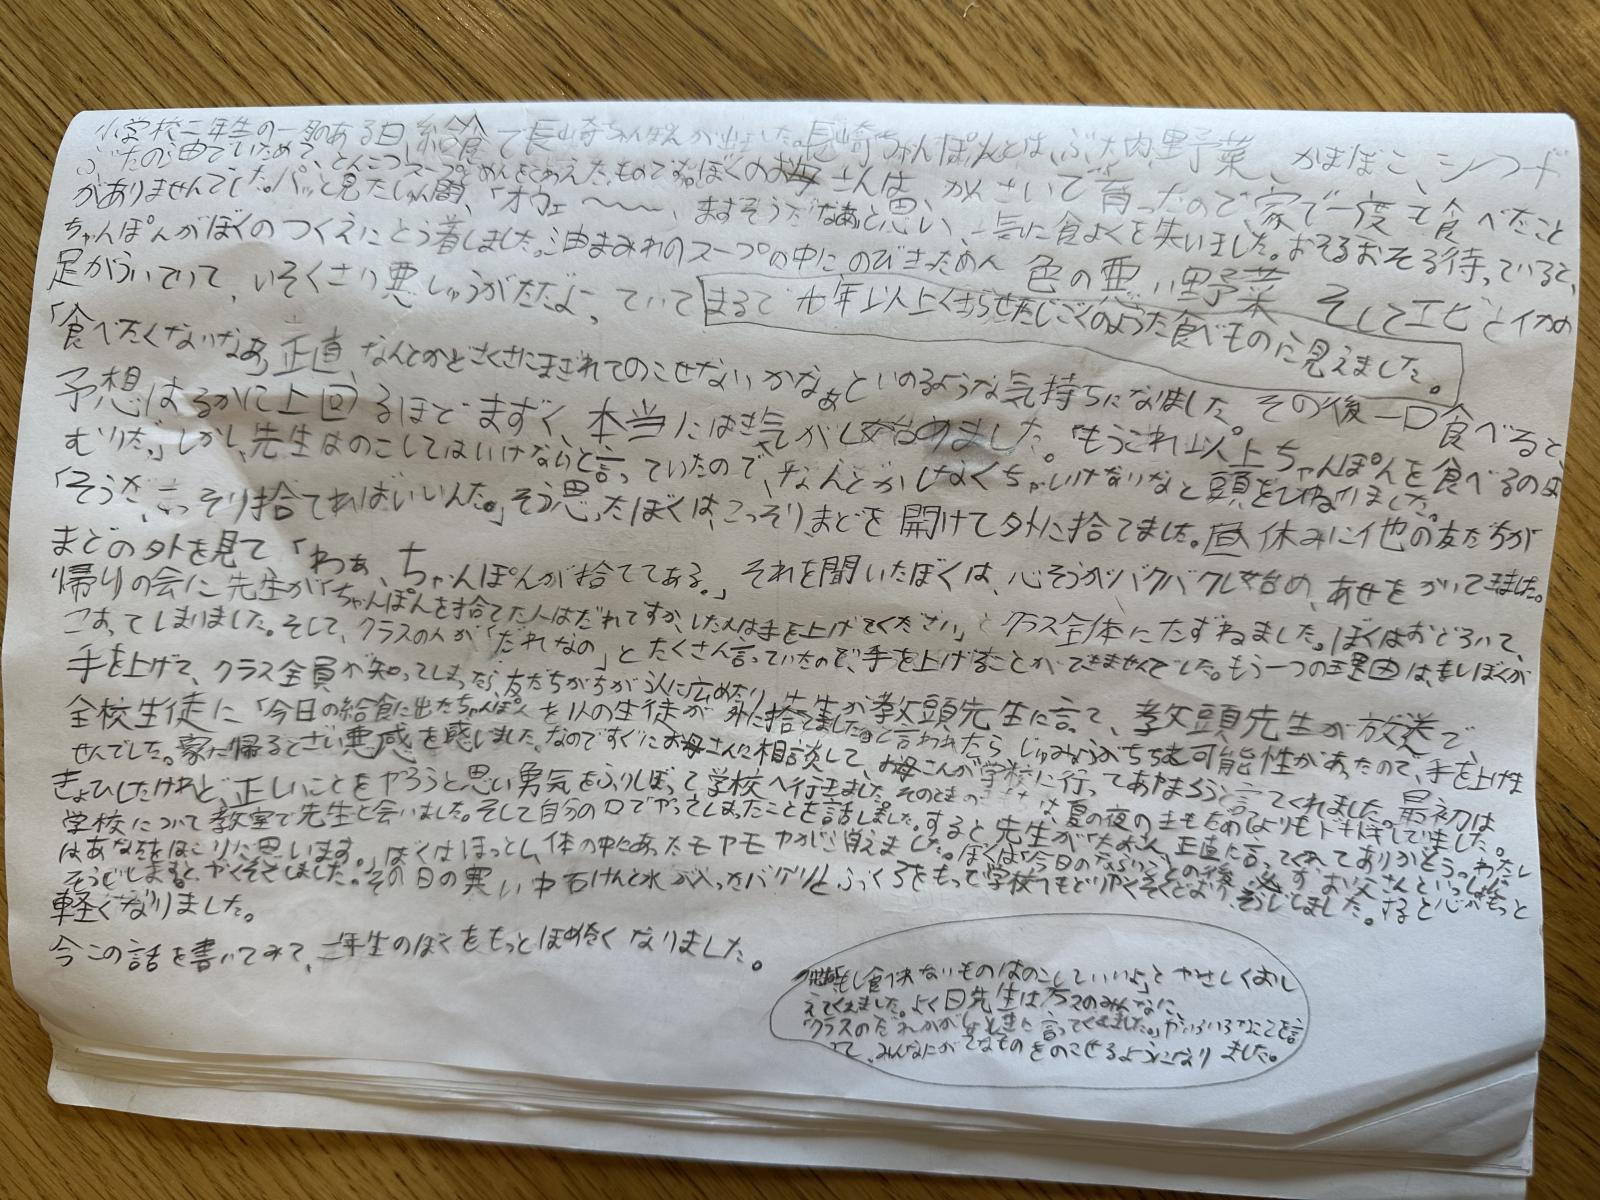 小学校二年生の一月のある日、給食で長崎ちゃんぽんが出ました。長崎ちゃんぽんとは、ぶた肉、野菜、かまぼこ、シーフード
ぶたの油でいためて、とんこつスープとめんをあえたものです。ぼくのお母さんは、かんさいで育ったので、家で一度も食べたこと
がありませんでした。パッと見たしゅん間、「オウェ〜〜〜、まずそうだなあ」と思い、一気に食よくを失いました。おそるおそる待っていると、
ちゃんぽんがぼくのつくえにとう着しました。油まみれのスープの中にのびきっためん 色の悪い野菜 そしてエビとイカの
足がういていて、いそくさい悪しゅうがただよっていてまるで 七年以上くさらせたじごくのような食べものに見えました。
「食べたくないなあ。正直、なんとかどさくさにまぎれてのこせないかなぁ」といのるような気持ちになりました。その後一口食べると、
予想はるかに上回るほどまずく、本当にはき気がし始めました。「もうこれ以上ちゃんぽんを食べるのは
むりだ。」しかし、先生はのこしてはいけないと言っていたので、なんとかしなくちゃいけないなと頭をひねりました。
「そうだ、こっそり捨てればいいんだ。」そう思ったぼくは、こっそりまどを開けて外に捨てました。昼休みに他の友だちが
まどの外を見て、「わぁ、ちゃんぽんが捨ててある。」それを聞いたぼくは、心ぞうがバクバクし始め、あせをかいてきました。
帰りの会に先生が「ちゃんぽんを捨てた人はだれですか、した人は手を上げてください」とクラス全体にたずねました。ぼくはおどろいて、
こまってしまいました。そして、クラスの人が「だれなの」とたくさん言っていたので、手を上げることができませんでした。もう一つの理由は、もしぼくが
手を上げて、クラス全員が知ってしまったら、友だちがちがう人に広めたり、先生が教頭先生に言って、教頭先生が放送で、
全校生徒に「今日の給食に出たちゃんぽんを1人の生徒が外に捨てました。」と言われたらじゅみょうがちぢむ可能性があったので、手を上げま
せんでした。家に帰るとざい悪感を感じました。なのですぐにお母さんに相談して、お母さんが学校に行ってあやまろうと言ってくれました。最初は
きょひしたけれど、正しいことをやろうと思い勇気をふりしぼって学校へ行きました。そのときの は、夏の夜のきもだめしよりもドキドキしていました。
学校について教室で先生と会いました。そして自分の口でやってしまったことを話しました。すると先生が「 正直に言ってくれてありがとう。わたし
はあなたをほこりに思います。」ぼくはほっとし、体の中にあったモヤモヤが消えました。ぼくは「今日のならいごとの後、必ずお父さんといっしょに
そうじします」と、やくそくしました。その日の寒い中石けんと水が入ったバケツとふくろをもって学校へもどりやくそくどおり、そうじしました。すると心がもっと
軽くなりました。
今この話を書いてみて、二年生のぼくをもっとほめたくなりました。
「 もし食べれないものはのこしていいよ」とやさしくおし
えてくれました。よく日先生はクラスのみんなに、
「クラスのだれかが正じきに言ってくれました。」 いろいろなことを言
って、みんなにがてなものをのこせるようになりました。